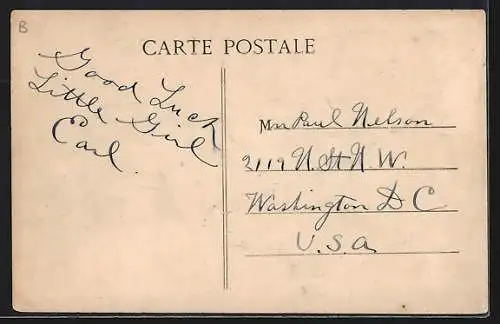 B
CARTE POSTALE
Good Luck
Little Girl
Earl.
Mrs Paul Nelson
2119 N. St N.W.
Washington D C
U.S.A